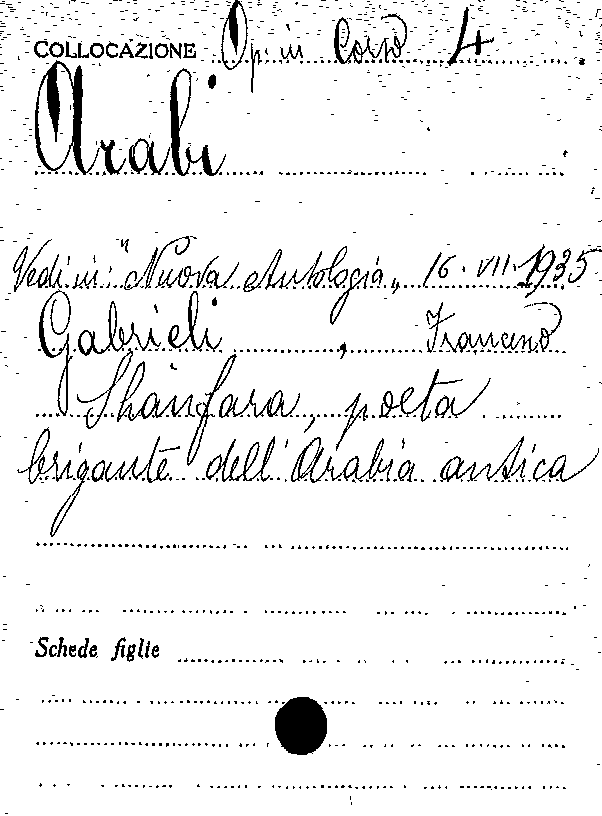 COLLOCAZIONE Op. in Corso 4
Arabi
Vedi in: "Nuova Antologia„ 16. VII. 1935
Gabrieli, Francesco
Shànfara, poeta
brigante dell'Arabia antica
Schede figlie